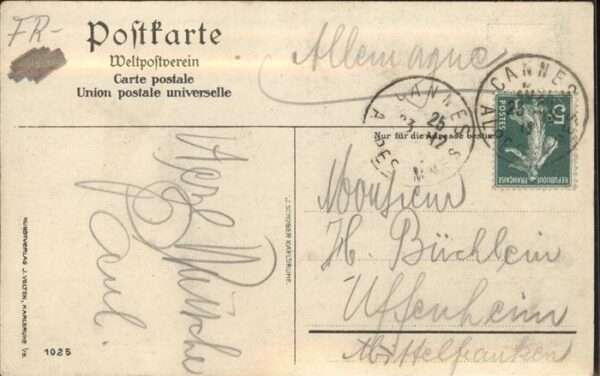 FR-
Postkarte
Weltpostverein
Carte postale
Union postale universelle
Allemagne
CANNES
25
CANNES
Nur für die Adresse
5
POSTES
REPUBLIQUE FRANÇAISE
Herzl.
Wünsche
Paul.
Monsieur
H. Büchlein
Uffenheim
Mittelfranken
J. SCHOBER KARLSRUHE.
KUNSTVERLAG J. VELTEN, KARLSRUHE
1025